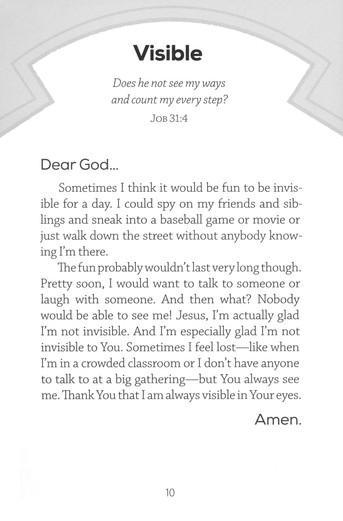 Visible
Does he not see my ways
and count my every step?
JOB 31:4
Dear God...
Sometimes I think it would be fun to be invis-
ible for a day. I could spy on my friends and sib-
lings and sneak into a baseball game or movie or
just walk down the street without anybody know-
ing I'm there.
The fun probably wouldn't last very long though.
Pretty soon, I would want to talk to someone or
laugh with someone. And then what? Nobody
would be able to see me! Jesus, I'm actually glad
I'm not invisible. And I'm especially glad I'm not
invisible to You. Sometimes I feel lost—like when
I'm in a crowded classroom or I don't have anyone
to talk to at a big gathering—but You always see
me. Thank You that I am always visible in Your eyes.
Amen.
10